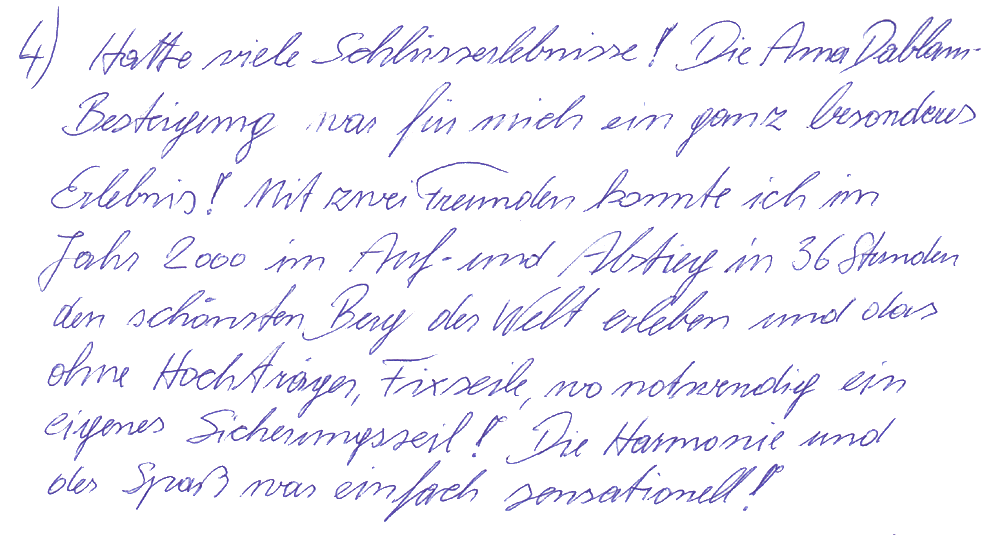 4) Hatte viele Schlüsselerlebnisse! Die Ama Dablam-
Besteigung war für mich ein ganz besonderes
Erlebnis! Mit zwei Freunden konnte ich im
Jahr 2000 im Auf- und Abstieg in 36 Stunden
den schönsten Berg der Welt erleben und das
ohne Hochträger, Fixseile, wo notwendig ein
eigenes Sicherungsseil! Die Harmonie und
der Spaß war einfach sensationell!